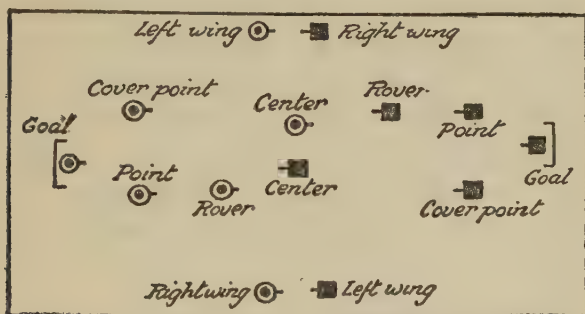 Left wing Right wing
Cover point Center Rover Point
Goal Goal
Point Rover Center Cover point
Right wing Left wing